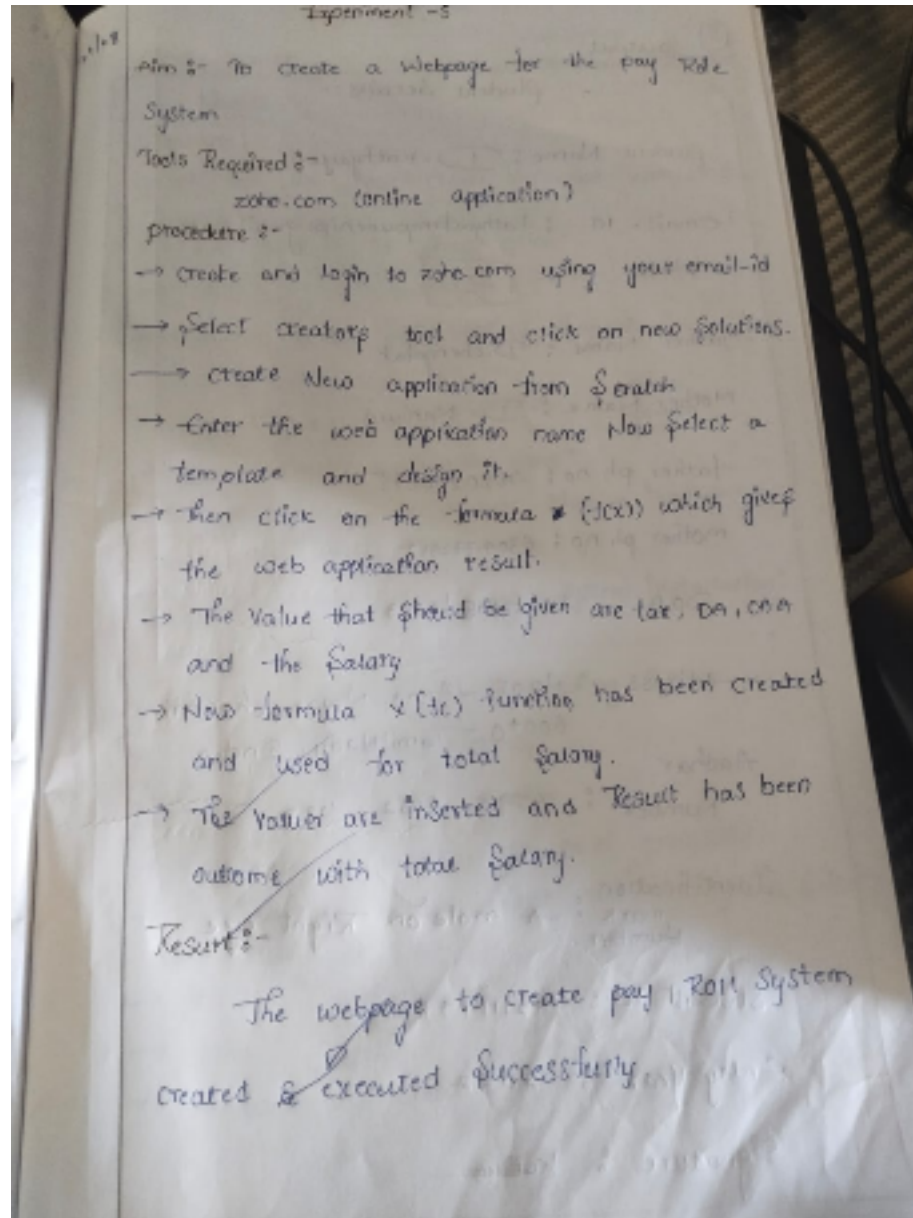 Experiment - 5
Aim :- To create a Webpage for the pay Role
System
Tools Required :-
zoho.com (online application)
procedure :-
→ create and login to zoho.com using your email-id
→ Select creators tool and click on new Solutions.
→ create New application from Scratch
→ Enter the web application name Now Select a
template and design it.
→ then click on the formula (f(x)) which gives
the web application result.
→ The value that should be given are tax, DA,
and the Salary
→ Now formula function has been created
and used for total Salary.
→ The values are inserted and Result has been
outcome with total Salary.
Result :-
The webpage to create pay Roll System
created & executed Successfully